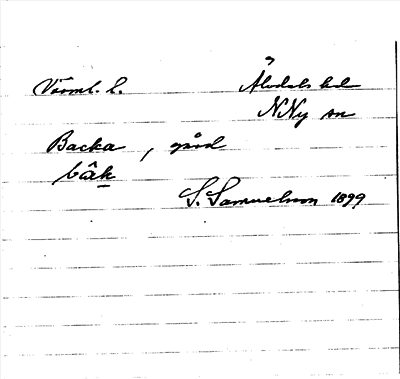 Värml. l. Älvdals hd
N Ny sn
Backa, gård
bâk
S. Samuelsson 1899